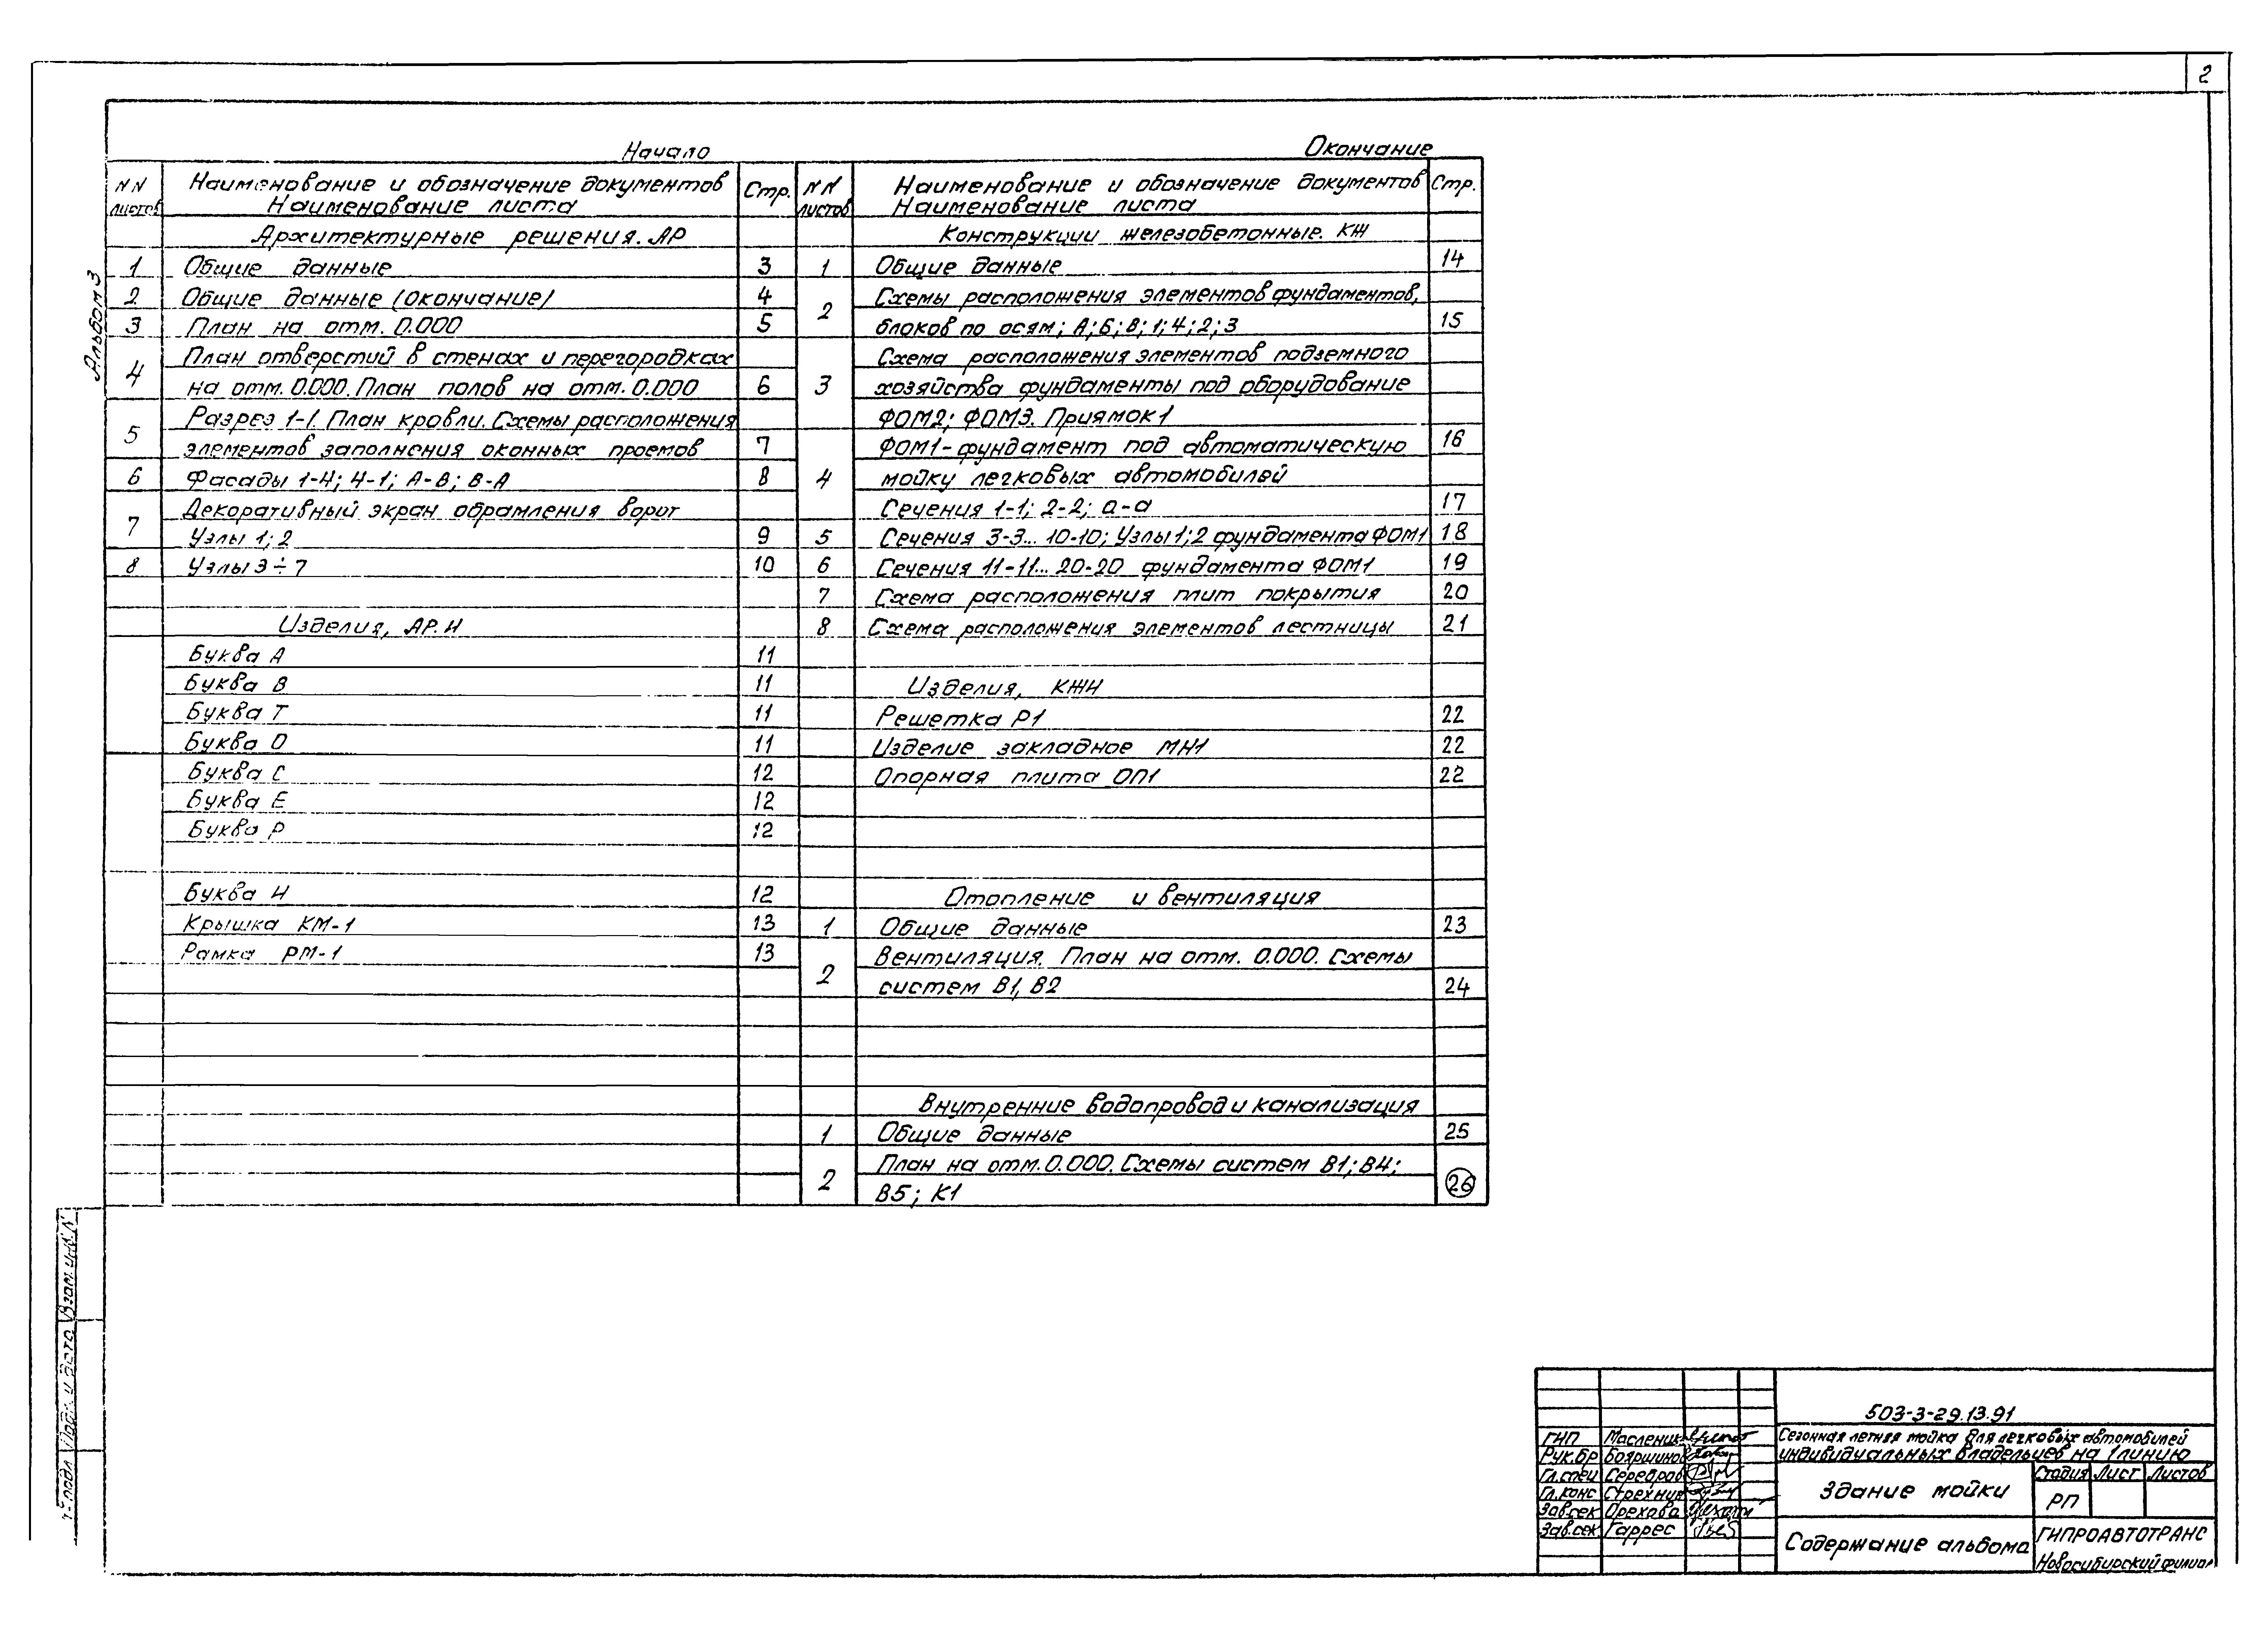 2
Альбом 3
Начало
NN листов Наименование и обозначение документов Наименование листа Стр.
Архитектурные решения. АР
1 Общие данные 3
2 Общие данные (окончание) 4
3 План на отм. 0.000 5
План отверстий в стенах и перегородках
4 на отм. 0.000. План полов на отм. 0.000 6
Разрез 1-1. План кровли. Схемы расположения
5 элементов заполнения оконных проемов 7
6 Фасады 1-4; 4-1; А-В; В-А 8
Декоративный экран обрамления ворот
7 Узлы 1; 2 9
8 Узлы 3÷7 10
Изделия, АР.И
Буква А 11
Буква В 11
Буква Т 11
Буква О 11
Буква С 12
Буква Е 12
Буква Р 12
Буква И 12
Крышка КМ-1 13
Рамка РМ-1 13
Окончание
NN листов Наименование и обозначение документов Наименование листа Стр.
Конструкции железобетонные. КЖ
1 Общие данные 14
Схемы расположения элементов фундаментов,
2 блоков по осям; А; Б; В; 1; 4; 2; 3 15
Схема расположения элементов подземного
3 хозяйства фундаменты под оборудование
ФОМ2; ФОМ3. Приямок 1
ФОМ1-фундамент под автоматическую 16
4 мойку легковых автомобилей
Сечения 1-1; 2-2; а-а 17
5 Сечения 3-3... 10-10; Узлы 1; 2 фундамента ФОМ1 18
6 Сечения 11-11... 20-20 фундамента ФОМ1 19
7 Схема расположения плит покрытия 20
8 Схема расположения элементов лестницы 21
Изделия, КЖИ
Решетка Р1 22
Изделие закладное МН1 22
Опорная плита ОП1 22
Отопление и вентиляция
1 Общие данные 23
Вентиляция. План на отм. 0.000. Схемы
2 систем В1, В2 24
Внутренние водопровод и канализация
1 Общие данные 25
План на отм. 0.000. Схемы систем В1; В4;
2 В5; К1 26
Взам. инв. N
Подп. и дата
подл
503-3-29.13.91
Сезонная летняя мойка для легковых автомобилей
индивидуальных владельцев на 1 линию
ГИП Масленик
Рук.бр Бояршинов
Гл.спец Серебров
Гл.конс Стрехнин
Зав.сек Орехова
Зав.сек Гаррес
Здание мойки
Стадия Лист Листов
РП
Содержание альбома
ГИПРОАВТОТРАНС
Новосибирский филиал